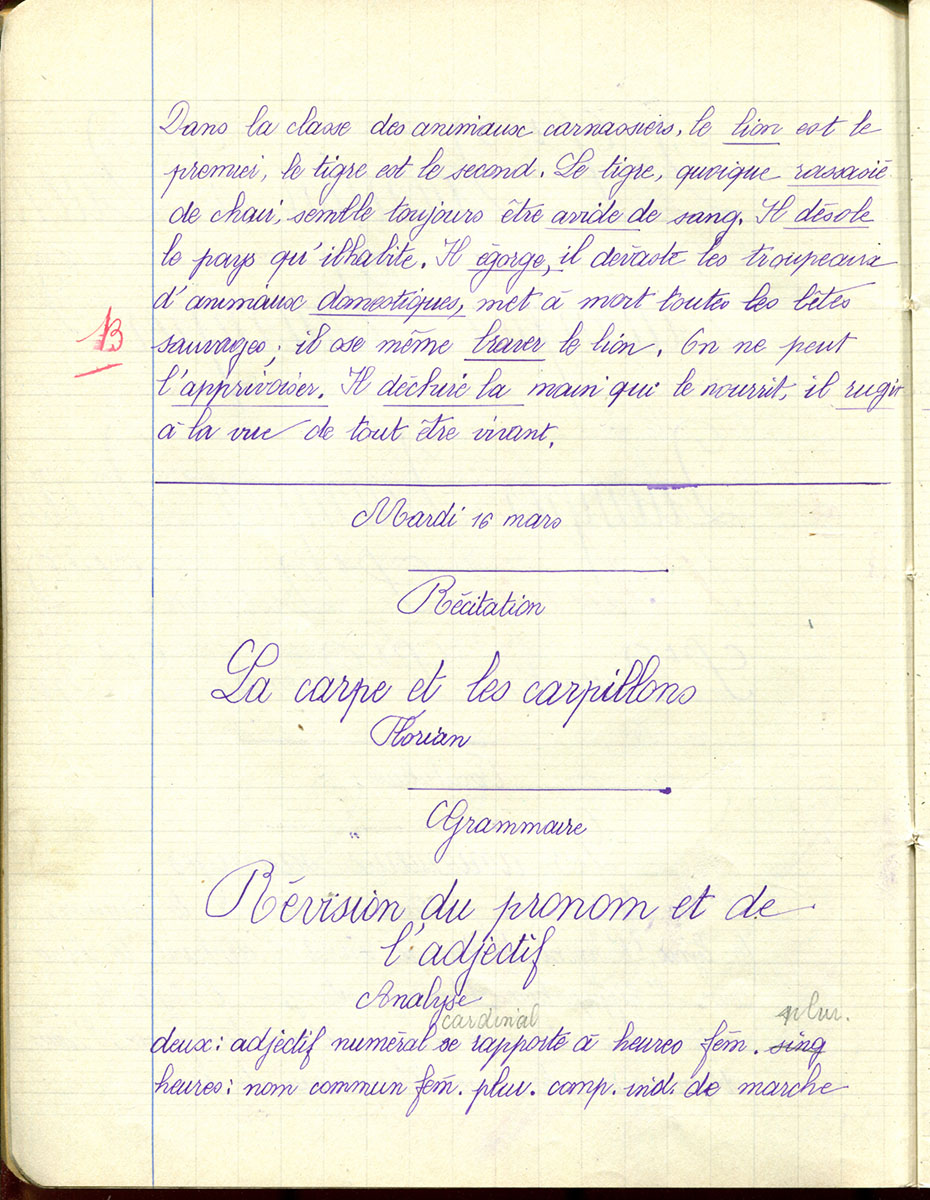 Dans la classe des animaux carnassiers, le lion est le
premier, le tigre est le second. Le tigre, quoique rassasié
de chair, semble toujours être avide de sang. Il désole
le pays qu'il habite. Il égorge, il dévaste les troupeaux
d'animaux domestiques, met à mort toutes les bêtes
B
sauvages ; il ose même braver le lion. On ne peut
l'apprivoiser. Il déchire la main qui le nourrit, il rugit
à la vue de tout être vivant.
Mardi 16 mars
Récitation
La carpe et les carpillons
Florian
Grammaire
Révision du pronom et de
l'adjectif
Analyse
cardinal plur.
deux : adjectif numéral se rapporte à heures fém. sing
heures : nom commun fém. plur. comp. ind. de marche